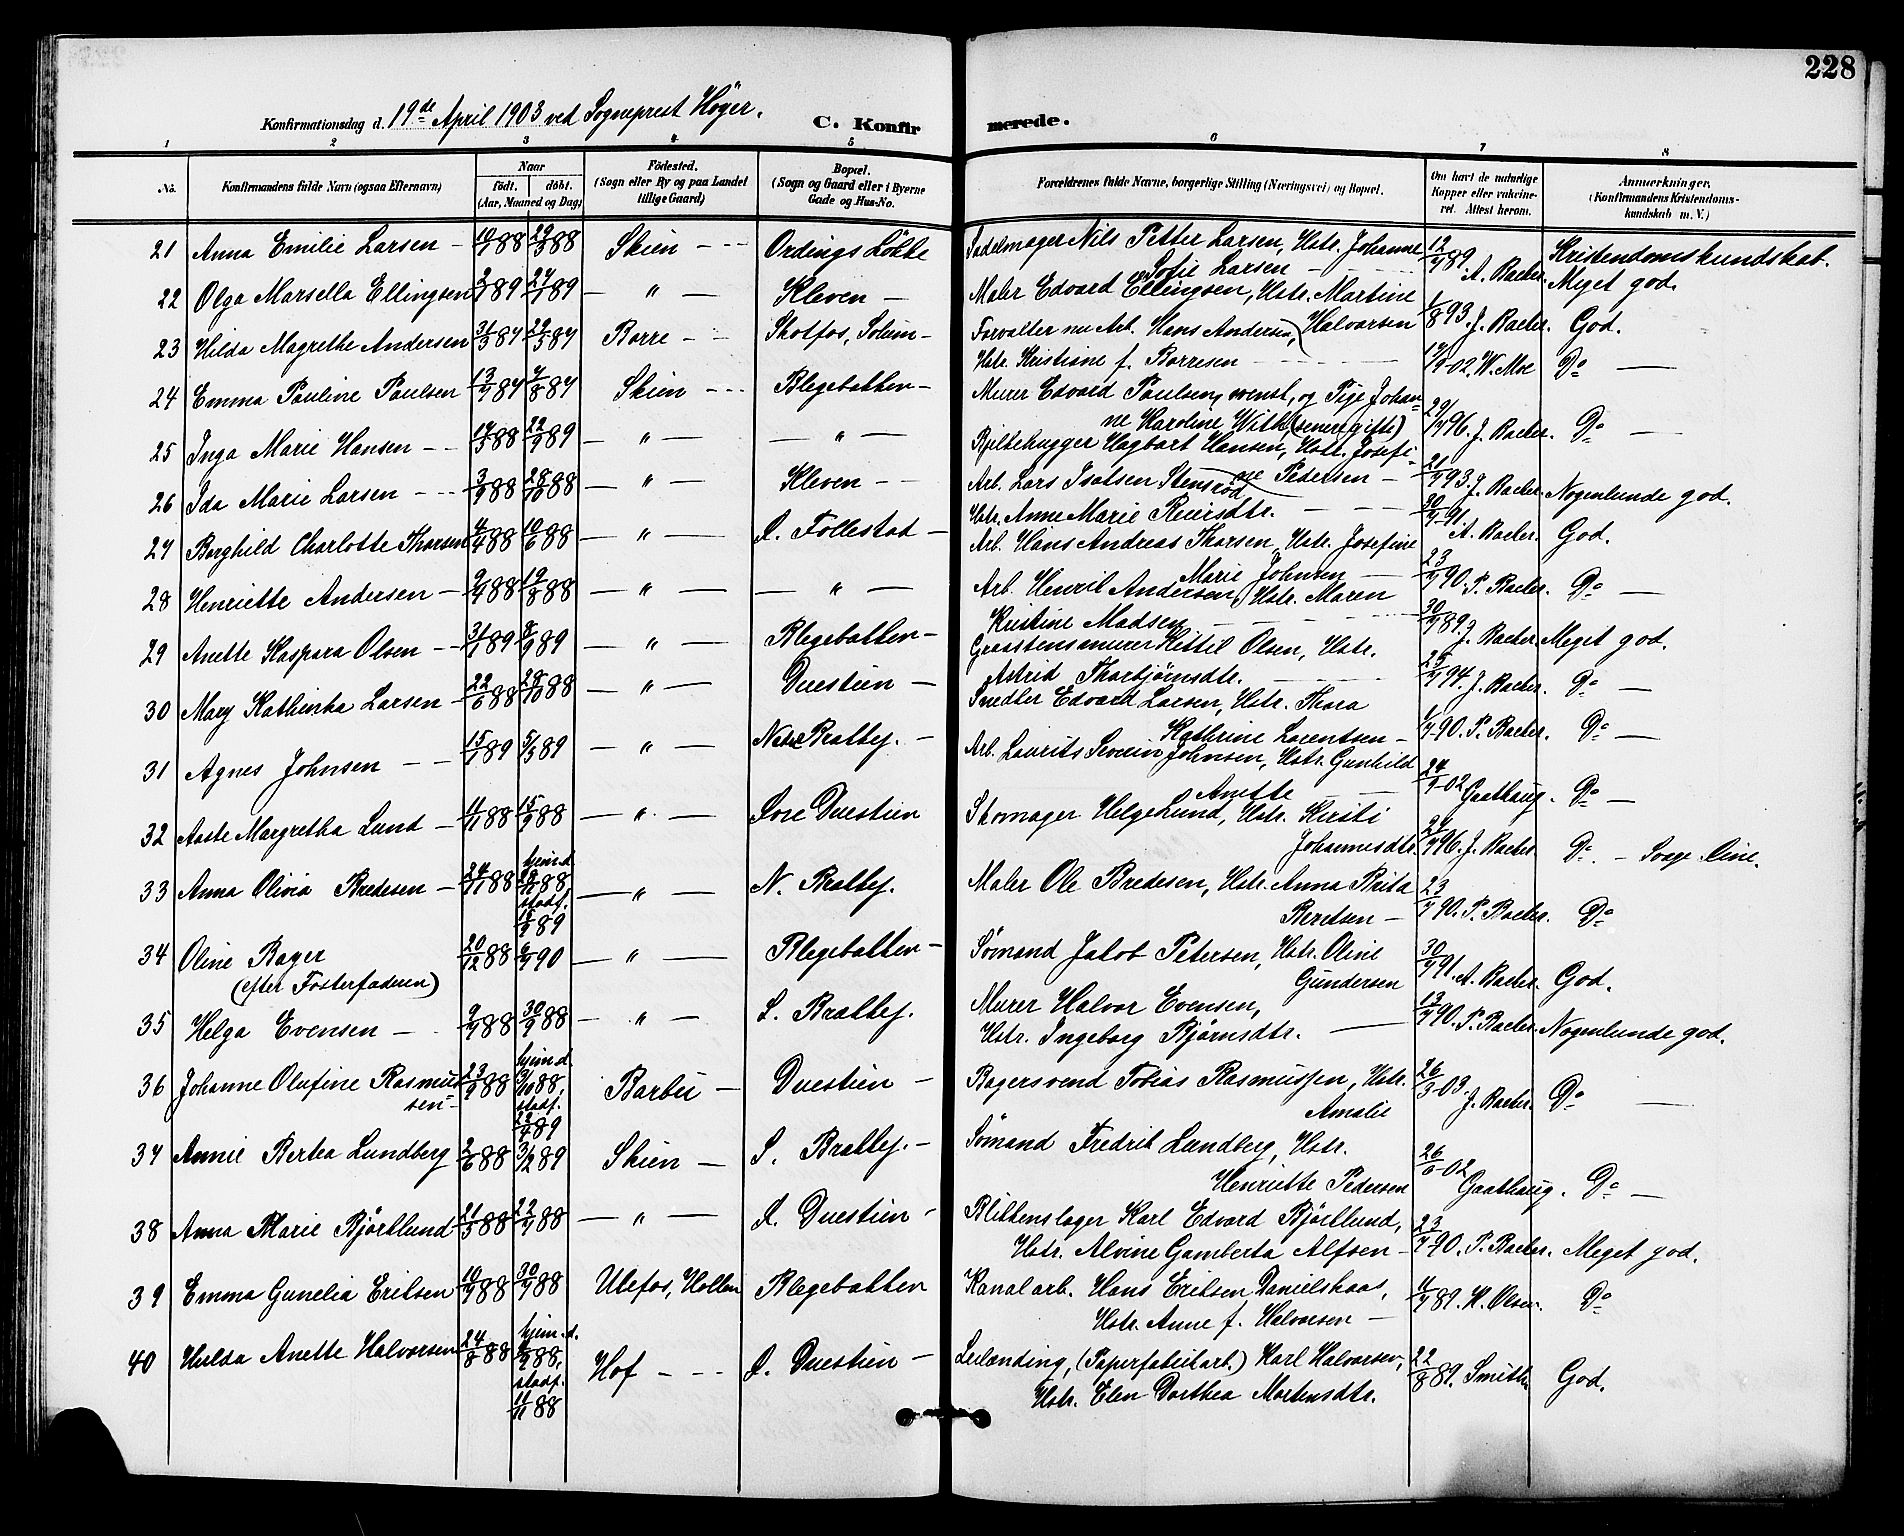 228
Konfirmationsdag d. 19de April 1903 ved Sogneprest Höyer.
C. Konfirmerede.
1 2 3 4 5 6 7 8
No. Konfirmandens fulde Navn (ogsaa Efternavn) Naar födt. döbt. (Aar, Maaned og Dag) Födested. (Sogn eller By og paa Landet tillige Gaard) Bopæl. (Sogn og Gaard eller i Byerne Gade og Hus-No. Forældrenes fulde Navne, borgerlige Stilling (Næringsvei) og Bopæl. Om havt de naturlige Kopper eller vakcineret. Attest herom. Anmærkninger. (Konfirmandens Kristendomskundskab m. V.)
21 Anna Emilie Larsen 88 88 Skien Ordings Løkke Sadelmager Nils Petter Larsen, Hstr. Johanne Sofie Larsen 89. A. Backer. Kristendomskundskab. Meget god.
22 Olga Marsella Ellingsen 89 89 " Kleven Maler Edvard Ellingsen, Hstr. Martine Halvorsen 93. J. Backer. God.
23 Hilda Magrethe Andersen 87 87 Borre Skotfos, Solum Forvalter nu Arb. Hans Andersen, Hstr. Kristiane f. Borresen 02. W. Moe Do
24 Emma Pauline Paulsen 87 87 Skien Blegebakken Murer Edvard Paulsen, svensk, og Pige Johanne Karoline With (senere gifte) 96. J. Backer. Do
25 Inga Marie Hansen 88 89 " " Bjelkehugger Hagbart Hansen, Hstr. Josefine Pedersen 93. J. Backer. Nogenlunde god.
26 Ida Marie Larsen 88 88 " Kleven Arb. Lars Isaksen Stensrød Hstr. Anne Marie Reiersdtr. 91. A. Backer. God.
27 Borghild Charlotte Thorsen 88 88 " Follestad Arb. Hans Andreas Thorsen, Hstr. Josefine Marie Johnsen 90. P. Backer. Do
28 Henriette Andersen 88 88 " " Arb. Henrik Andersen, Hstr. Maren Kristine Madsen 89. J. Backer. Meget god.
29 Anette Kaspara Olsen 89 89 " Blegebakken Graastensmurer Kittil Olsen, Hstr. Astrid Thorbjørnsdtr. 94. J. Backer. Do
30 Mary Kathinka Larsen 88 88 " Duestien Snedker Edvard Larsen, Hstr. Thora Kathrine Lorentsen 90. P. Backer. Do
31 Agnes Johnsen 15/7 89 5/5 89 " Nedre Brattej. Arb. Laurits Severin Johnsen, Hstr. Gunhild Anette 02 Gaathaug. Do
32 Aaste Margretha Lund 88 88 " Øvre Duestien Skomager Helge Lund, Hstr. Kirsti Johannesdtr. 96. J. Backer Do. Svage Øine.
33 Anna Olivia Bredesen 88 hjem.d. 88 stadf. 89 " N. Brattej. Maler Ole Bredesen, Hstr. Anna Brita Berntsen 90. P. Backer. Do
34 Oline Bager (efter Fosterfaderen) 20/12 88 90 " Blegebakken Sømand Jakob Petersen, Hstr. Oline Gundersen 91. A. Backer. God.
35 Helga Evensen 88 30/9 88 " S. Brattej. Murer Halvor Evensen, Hstr. Ingeborg Bjørnsdtr. 90. P. Backer. Nogenlunde god.
36 Johanne Olufine Rasmussen 88 hjem.d. 88, stadf. 89 Barbu Duestien Bagersvend Tobias Rasmussen, Hstr. Amalie 26/3-03. J. Backer. Do
37 Annie Bertea Lundberg 88 3/2 89 Skien S. Brattej. Sømand Fredrik Lundberg, Hstr. Henriette Pedersen 02 Gaathaug. Do
38 Anna Marie Bjørklund 88 88 " Duestien Blikkenslager Karl Edvard Bjørklund, Hstr. Alvine Gamberta Alfsen 90. P. Backer. Meget god.
39 Emma Gunelia Eriksen 88 88 Ulefos, Hollen Blegebakken Kanalarb. Hans Eriksen Danielskaas, Hstr. Anne f. Halvorsen 89. K. Olsen. Do
40 Hulda Anette Halvorsen 24/8 88 hjem.d. 88, stadf. 11/11 88 Hof Duestien Leilænding, (Papirfabrikarb.) Karl Halvorsen, Hstr. Elen Dorthea Mortensdtr. 22/8 89. Smith God.